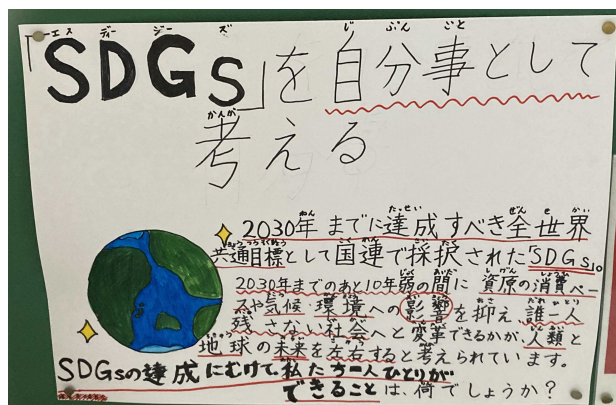 「SDGs」を自分事として
考える
2030年までに達成すべき全世界
共通目標として国連で採択された「SDGs」。
2030年までのあと10年弱の間に資原の消費ペー
スや気候・環境への影響を抑え、誰一人
残さない社会へと変革できるかが、人類と
地球の未来を左右すると考えられています。
SDGsの達成にむけて、私たち一人ひとりが
できることは、何でしょうか?